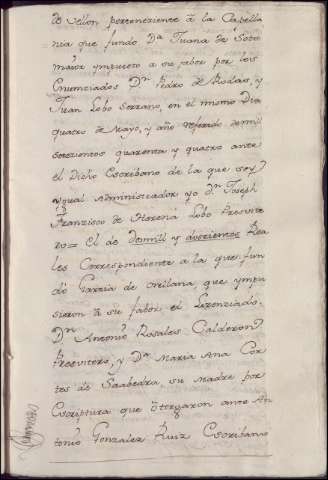 de vellon perteneciente â la Capella
nia que fundo Dª Juana de Soto
maior ympuesto a su fabor por los
Enunciados Dn Pedro de Rodas, y
Juan Lobo Serrano, en el mismo Dia
quatro de Mayo, y año referido de mill
setezientos quarenta y quatro ante
el Dicho Escribano de la que soy
ygual administrador yo Dn Joseph
Francisco de Heredia Lobo Presvite
ro = El de dosmill y doscientos Rea
les Correspondiente a la que fun
dó Garcia de Orellana que ympu
sieron â su fabor el Lizenziado
Dn Antonio Rosales Calderon
Presvitero, y Dª Maria Ana Cor
tes de Saabedra, su madre por
Escriptura que ôtorgaron ante An
tonio Gonzalez Ruiz Escribano